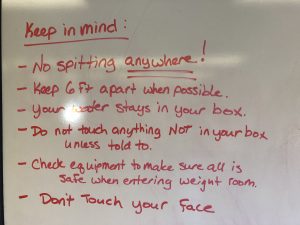 Keep in mind:
- No spitting anywhere!
- Keep 6 ft apart when possible.
- Your stays in your box.
- Do not touch anything NOT in your box
unless told to.
- Check equipment to make sure all is
safe when entering weight room.
- Don't Touch your Face